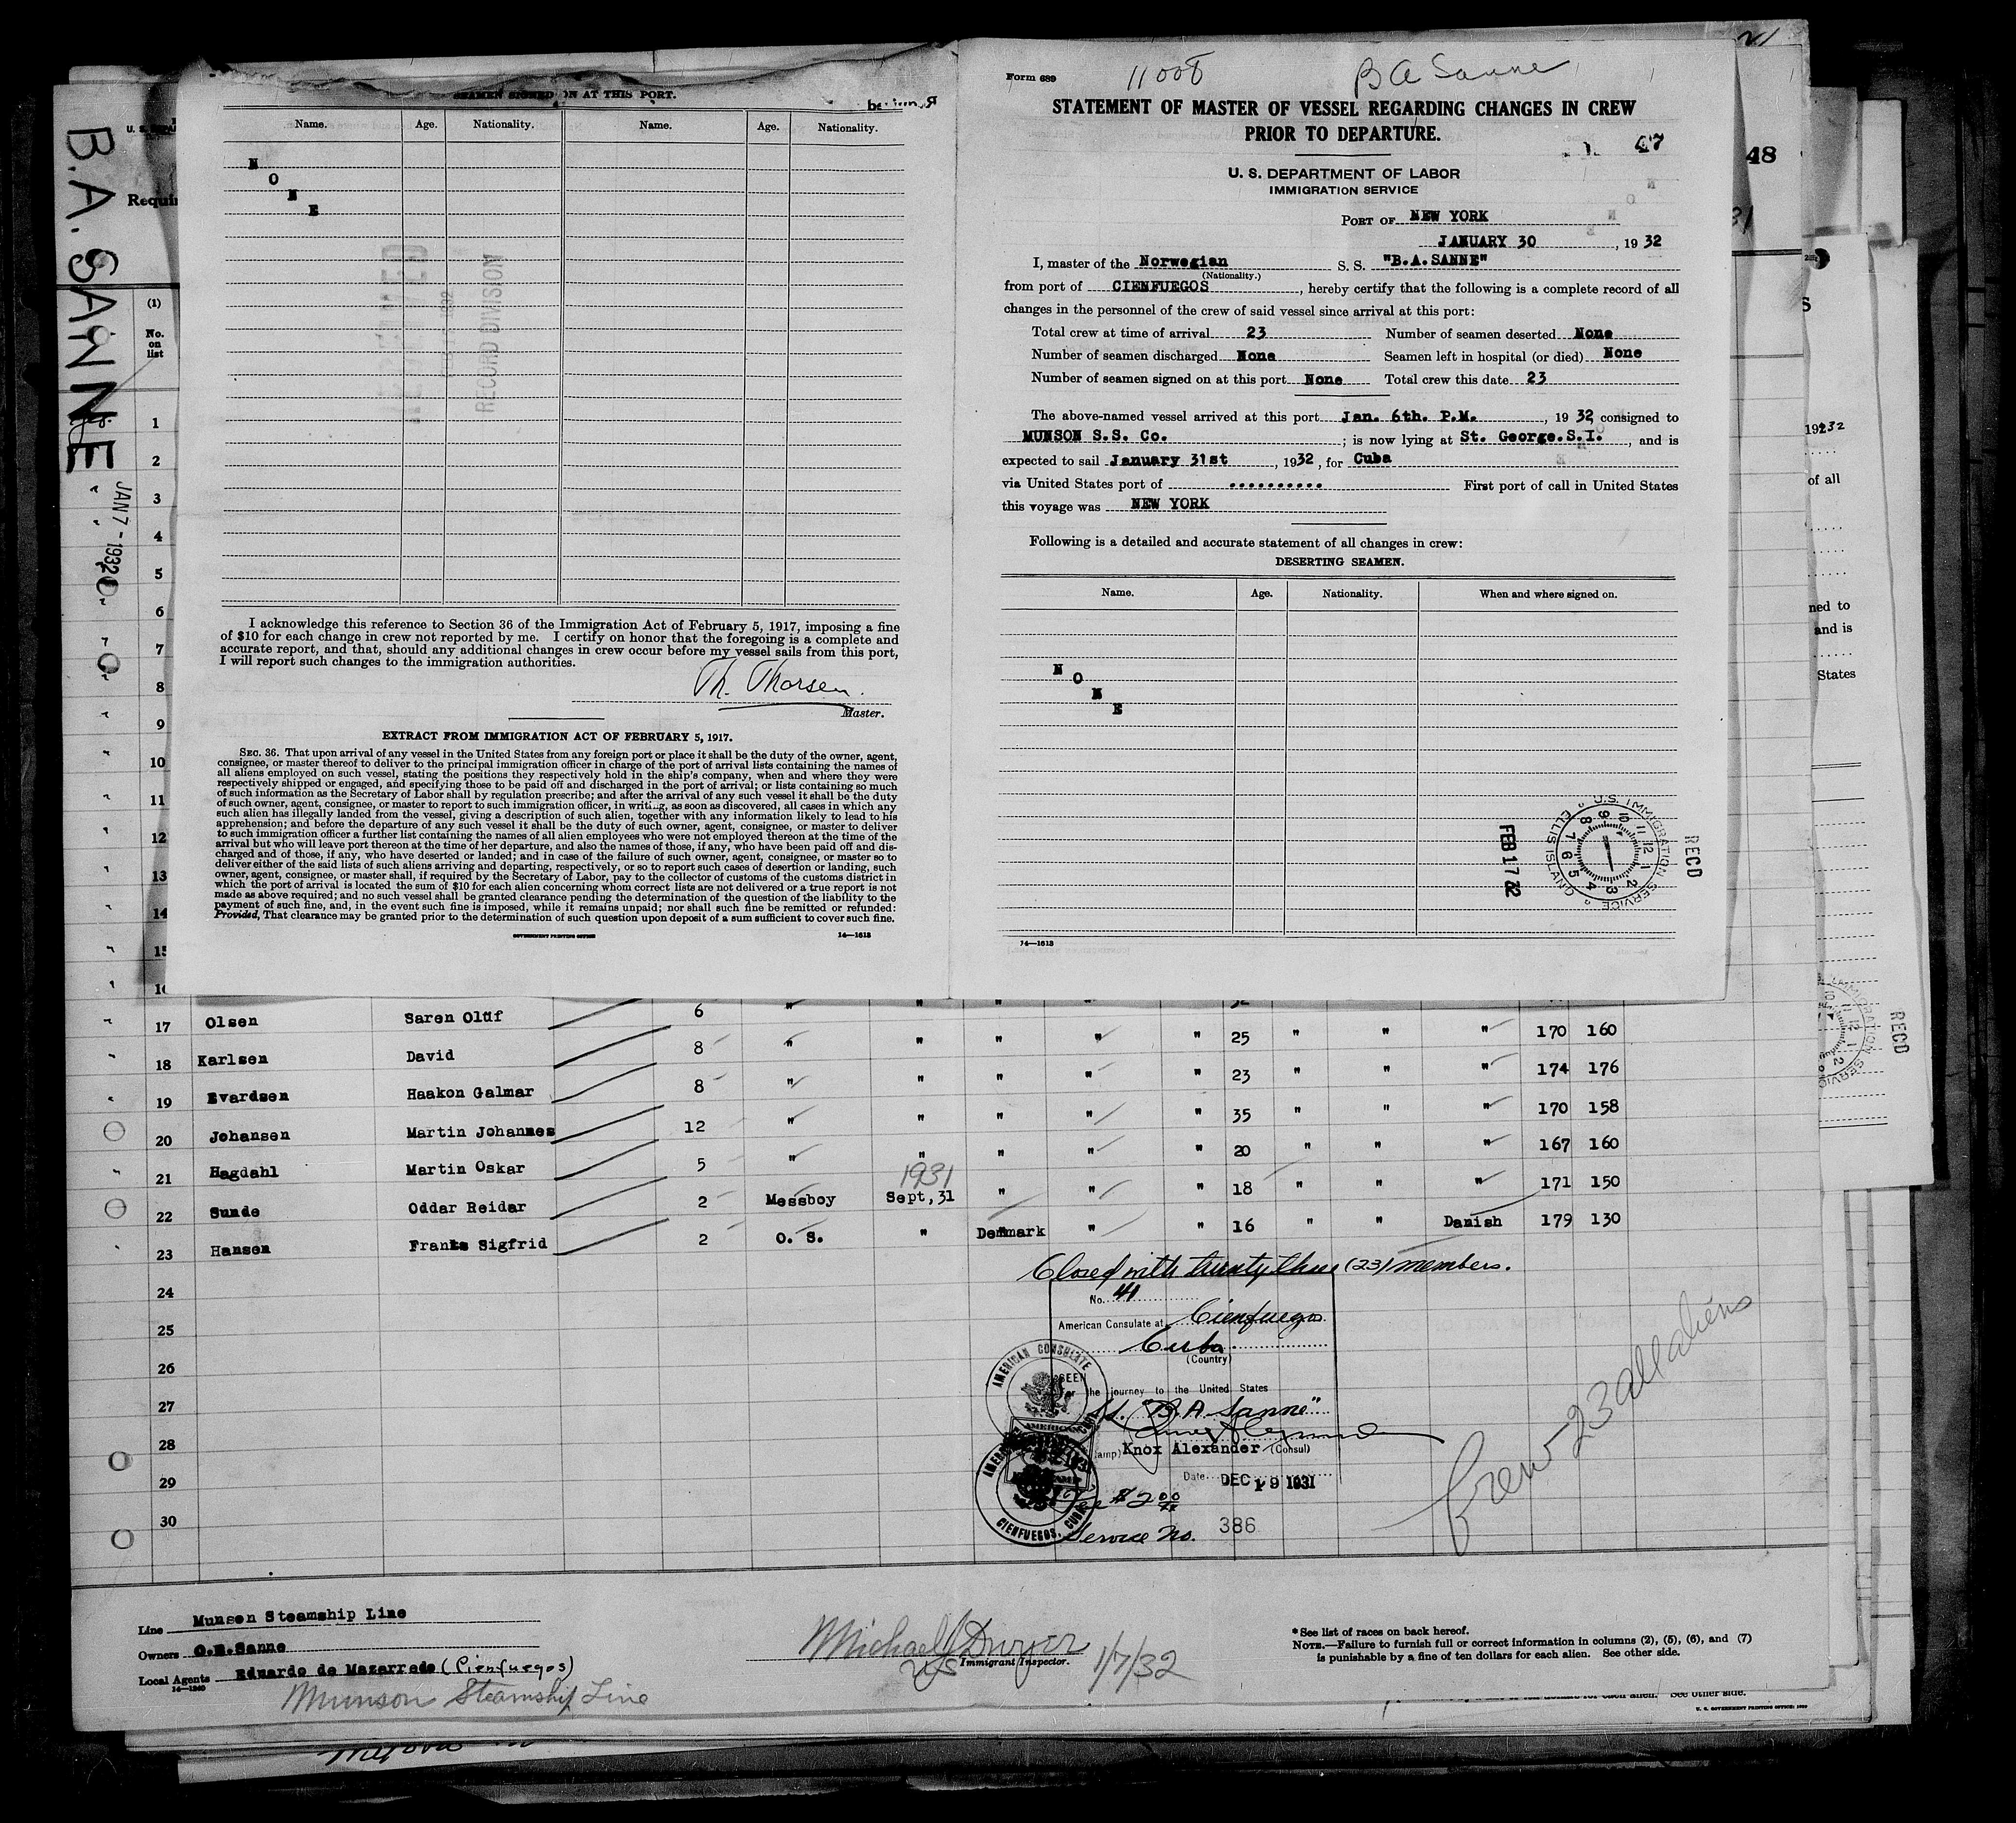 B.A. SANNE
JAN 7 - 1932
(1)
No.
on
list
1
2
3
4
5
6
7
8
9
10
11
12
13
14
SEAMEN SIGNED ON AT THIS PORT.
Name. Age. Nationality. Name. Age. Nationality.
N
O
N
E
RECORD DIVISION
I acknowledge this reference to Section 36 of the Immigration Act of February 5, 1917, imposing a fine
of $10 for each change in crew not reported by me. I certify on honor that the foregoing is a complete and
accurate report, and that, should any additional changes in crew occur before my vessel sails from this port,
I will report such changes to the immigration authorities.
Th. Thorsen.
Master.
EXTRACT FROM IMMIGRATION ACT OF FEBRUARY 5, 1917.
SEC. 36. That upon arrival of any vessel in the United States from any foreign port or place it shall be the duty of the owner, agent,
consignee, or master thereof to deliver to the principal immigration officer in charge of the port of arrival lists containing the names of
all aliens employed on such vessel, stating the positions they respectively hold in the ship's company, when and where they were
respectively shipped or engaged, and specifying those to be paid off and discharged in the port of arrival; or lists containing so much
of such information as the Secretary of Labor shall by regulation prescribe; and after the arrival of any such vessel it shall be the duty
of such owner, agent, consignee, or master to report to such immigration officer, in writing, as soon as discovered, all cases in which any
such alien has illegally landed from the vessel, giving a description of such alien, together with any information likely to lead to his
apprehension; and before the departure of any such vessel it shall be the duty of such owner, agent, consignee, or master to deliver
to such immigration officer a further list containing the names of all alien employees who were not employed thereon at the time of the
arrival but who will leave port thereon at the time of her departure, and also the names of those, if any, who have been paid off and dis-
charged and of those, if any, who have deserted or landed; and in case of the failure of such owner, agent, consignee, or master so to
deliver either of the said lists of such aliens arriving and departing, respectively, or so to report such cases of desertion or landing, such
owner, agent, consignee, or master shall, if required by the Secretary of Labor, pay to the collector of customs of the customs district in
which the port of arrival is located the sum of $10 for each alien concerning whom correct lists are not delivered or a true report is not
made as above required; and no such vessel shall be granted clearance pending the determination of the question of the liability to the
payment of such fine, and, in the event such fine is imposed, while it remains unpaid; nor shall such fine be remitted or refunded:
Provided, That clearance may be granted prior to the determination of such question upon deposit of a sum sufficient to cover such fine.
GOVERNMENT PRINTING OFFICE 14—1613
Form 689
11008 B A Sanne
STATEMENT OF MASTER OF VESSEL REGARDING CHANGES IN CREW
PRIOR TO DEPARTURE.
47
U. S. DEPARTMENT OF LABOR
IMMIGRATION SERVICE
PORT OF NEW YORK
JANUARY 30, 1932
I, master of the Norwegian S. S. "B.A.SANNE"
(Nationality.)
from port of CIENFUEGOS, hereby certify that the following is a complete record of all
changes in the personnel of the crew of said vessel since arrival at this port:
Total crew at time of arrival 23 Number of seamen deserted None
Number of seamen discharged None Seamen left in hospital (or died) None
Number of seamen signed on at this port None Total crew this date 23
The above-named vessel arrived at this port Jan. 6th. P.M., 1932, consigned to
MUNSON S.S. Co.; is now lying at St. George.S.I., and is
expected to sail January 31st, 1932, for Cuba
via United States port of .......... First port of call in United States
this voyage was NEW YORK
Following is a detailed and accurate statement of all changes in crew:
DESERTING SEAMEN.
Name. Age. Nationality. When and where signed on.
N
O
N
E
RECD
U.S. IMMIGRATION SERVICE
ELLIS ISLAND
FEB 17
14—1613
48
of all
and is
States
RECD
17 Olsen Saren Oluf 6 " " "
18 Karlsen David 8 " " " " " 25 " " " 170 160
19 Evardsen Haakon Galmar 8 " " " " " 23 " " " 174 176
20 Johansen Martin Johannes 12 " " " " " 35 " " " 170 158
21 Hagdahl Martin Oskar 5 " " " " " 20 " " " 167 160
1931
22 Sunde Oddar Reidar 2 Messboy Sept,31 " " " 18 " " " 171 150
23 Hansen Franks Sigfrid 2 O. S. " Denmark " " 16 " " Danish 179 130
24
25
26
27
28
29
30
Closed with twenty three (23) members.
No. 41
American Consulate at Cienfuegos
Cuba
(Country)
SEEN
for the journey to the United States
SS. "B.A Sanne"
Knox Alexander (Consul)
Date DEC 19 1931
Fee $2.00
Service No. 386
AMERICAN CONSULATE
CIENFUEGOS, CUBA
Crew 23 all aliens
Line Munson Steamship Line
Owners O.B.Sanne
Local Agents Eduardo de Mazarredo (Cienfuegos)
14—1240
Munson Steamship Line
Michael J Dwyer
US Immigrant Inspector. 1/7/32
* See list of races on back hereof.
NOTE.—Failure to furnish full or correct information in columns (2), (5), (6), and (7)
is punishable by a fine of ten dollars for each alien. See other side.
See other side.
U. S. GOVERNMENT PRINTING OFFICE